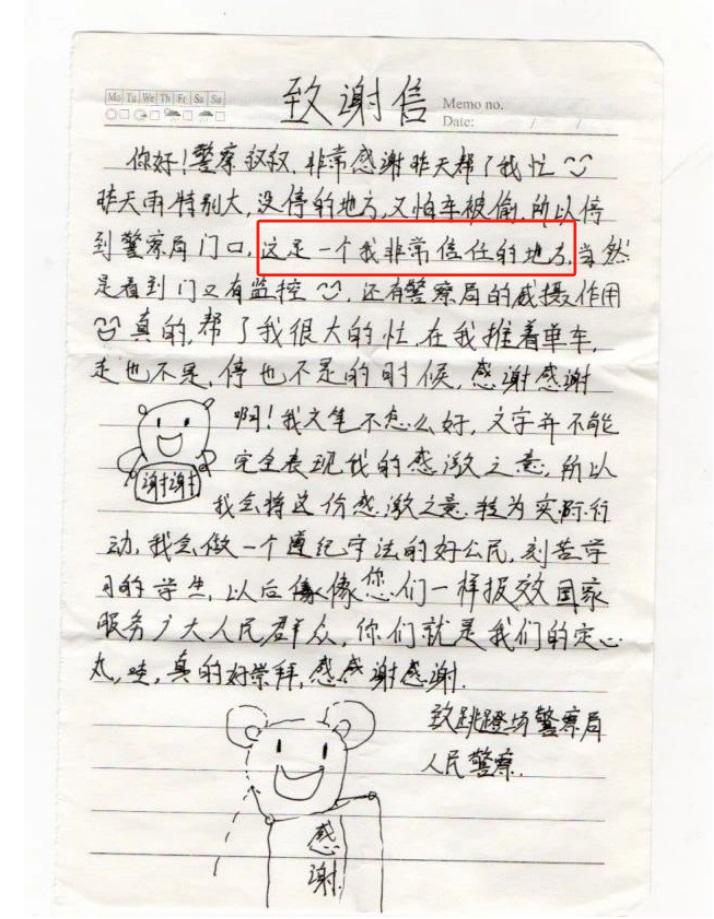 致谢信
Mo Tu We Th Fr Sa Su
Memo no.
Date: / /
你好!警察叔叔,非常感谢昨天帮了我忙
昨天雨特别大,没停的地方,又怕车被偷,所以停
到警察局门口,这是一个我非常信任的地方,当然
是看到门又有监控,还有警察局的威摄作用
真的,帮了我很大的忙,在我推着单车,
走也不是,停也不是的时候,感谢感谢
啊!我文笔不怎么好,文字并不能
完全表现我的感激之意,所以
我会将这份感激之意转为实际行
动,我会做一个遵纪守法的好公民,刻苦学
习的学生,以后像您们一样报效国家
服务广大人民群众,你们就是我们的定心
丸,哇,真的好崇拜,感感谢感谢.
谢谢
致跳蹬场警察局
人民警察.
感
谢